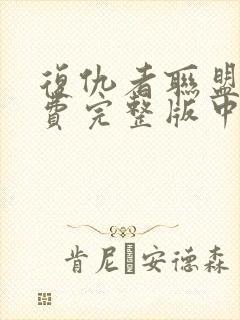 復仇者聯盟
費完整版中
肯尼 安德森